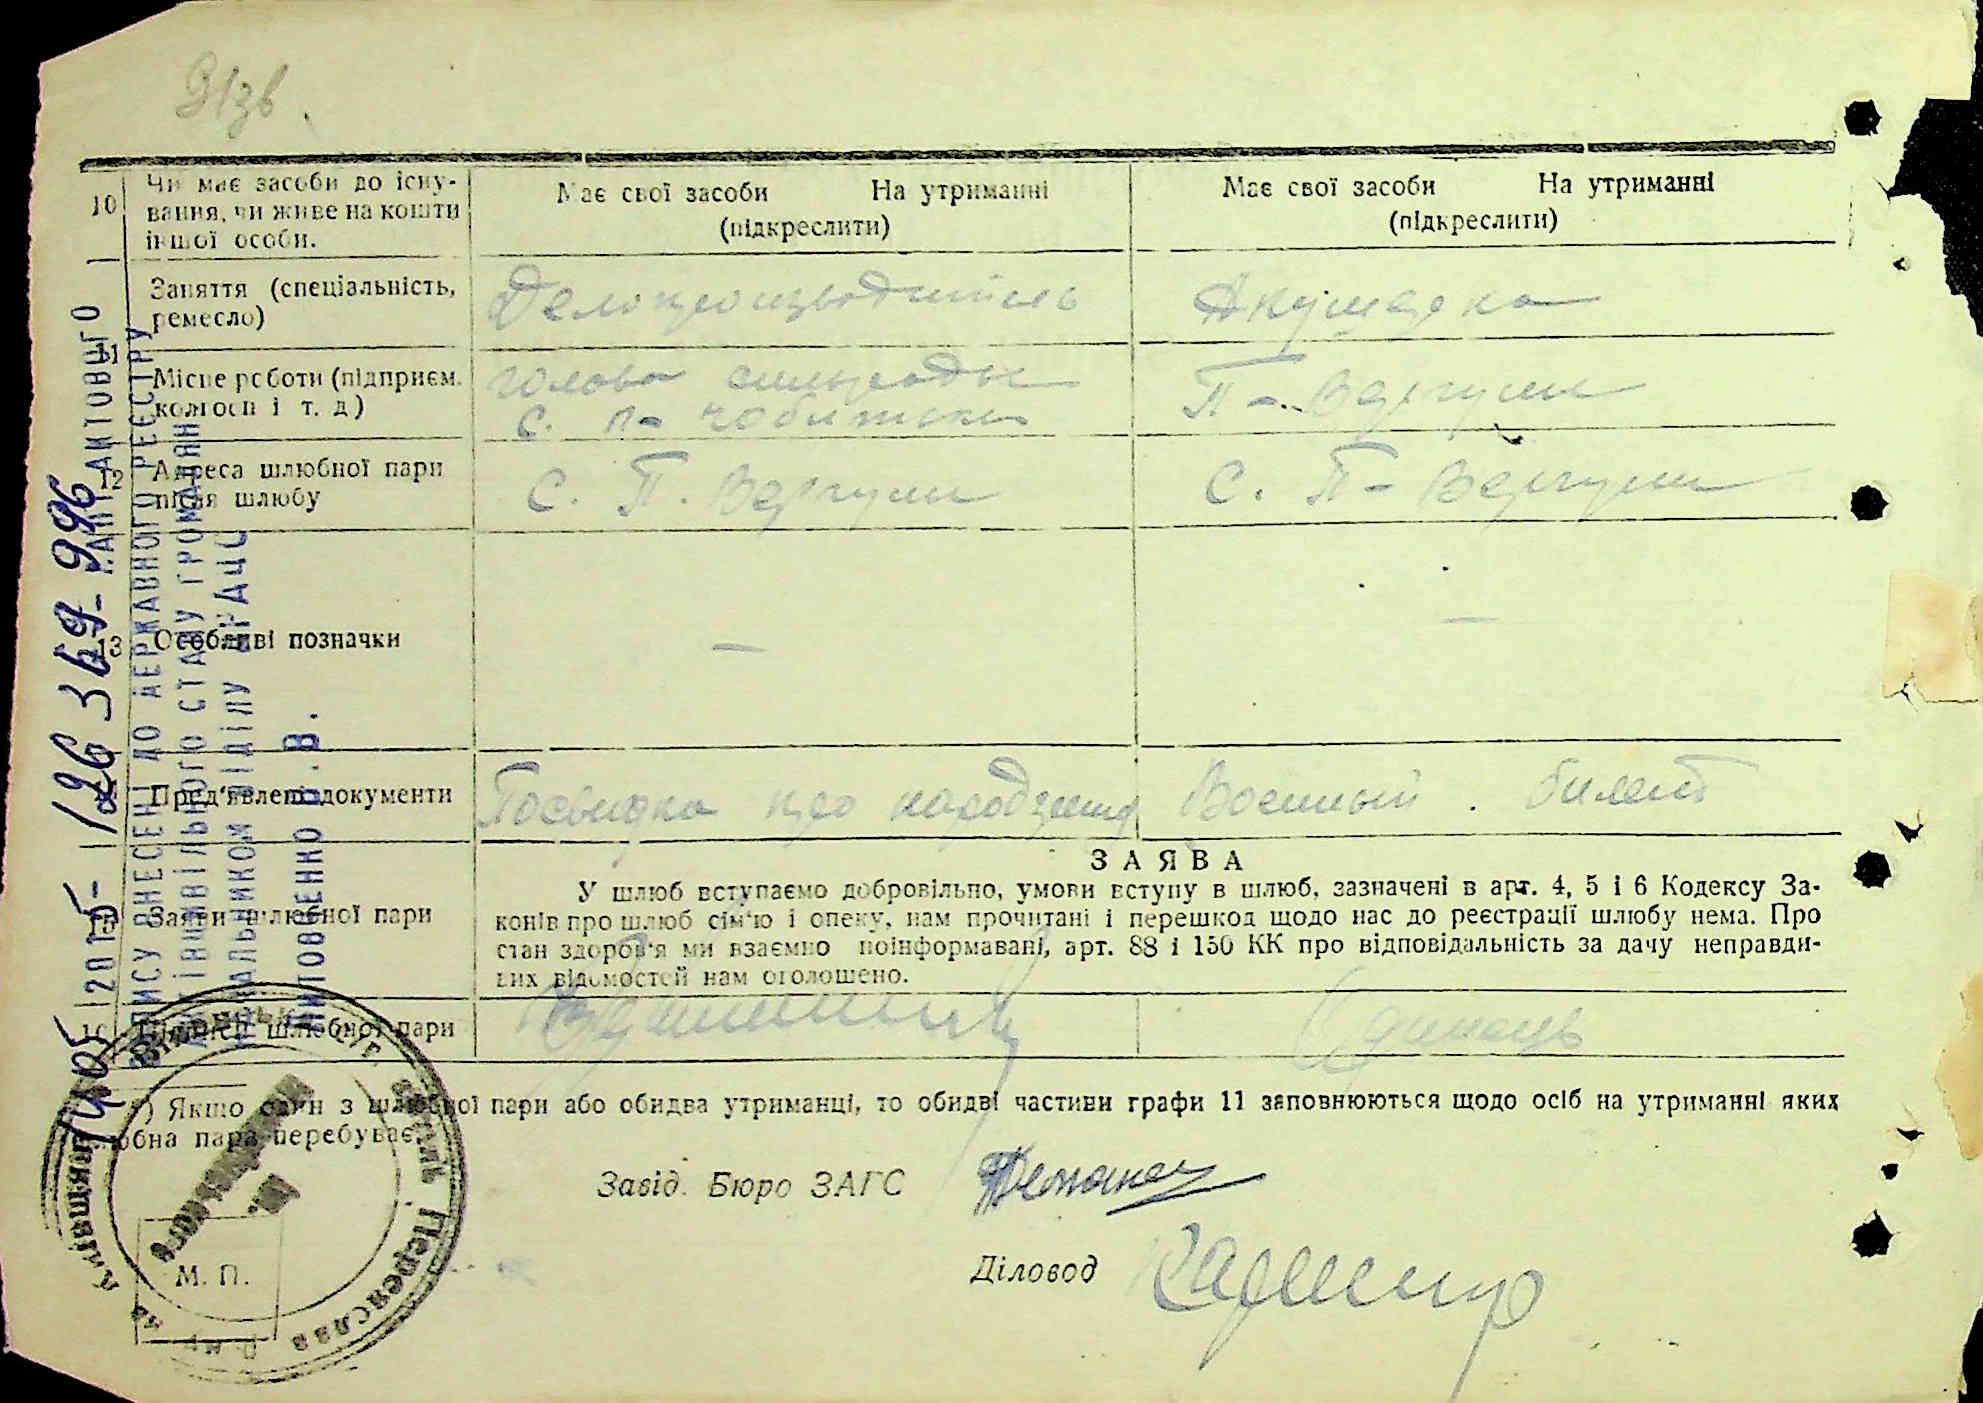 91зв.
10
Чи має засоби до існу-
вання, чи живе на кошти
іншої особи.
Має свої засоби На утриманні
(підкреслити)
Має свої засоби На утриманні
(підкреслити)
11
Заняття (спеціальність,
ремесло)
Делопроизводитель
Акушерка
Місце роботи (підприєм.
колгосп і т. д)
голова сільради
С. П-
П-Вергуни
12
Адреса шлюбної пари
після шлюбу
С. П. Вергуни
С. П-Вергуни
13
Особливі позначки
—
—
Пред'явлені документи
Посвидка про народження
Военный билет
15
Заяви шлюбної пари
ЗАЯВА
У шлюб вступаємо добровільно, умови вступу в шлюб, зазначені в арт. 4, 5 і 6 Кодексу За-
конів про шлюб сім'ю і опеку, нам прочитані і перешкод щодо нас до реєстрації шлюбу нема. Про
стан здоров'я ми взаємно поінформавані, арт. 88 і 150 КК про відповідальність за дачу неправди-
вих відомостей нам оголошено.
16
Підписи шлюбної пари
Одинець
) Якщо один з шлюбної пари або обидва утриманці, то обидві частини графи 11 заповнюються щодо осіб на утриманні яких
шлюбна пара перебуває.
Завід. Бюро ЗАГС
Діловод
М. П.
АКТОВОГО
ЗАПИСУ ВНЕСЕНІ ДО ДЕРЖАВНОГО РЕЄСТРУ
АКТІВ ЦИВІЛЬНОГО СТАНУ ГРОМАДЯН
НАЧАЛЬНИКОМ ВІДДІЛУ ДРАЦС
2015
Переяслав